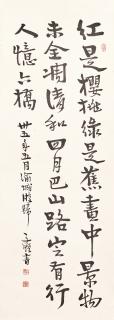 红是樱桃绿是蕉画中景物
未全凋清和四月巴山路定有行
人忆六桥
卅五年五月渝州临归
子恺书